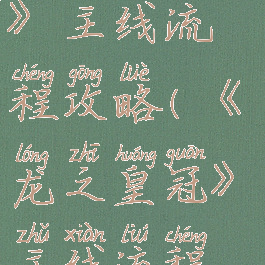 》主线流
chéng gōng lüè
程攻略(《
lóng zhī huáng guān
龙之皇冠》
zhǔ xiàn liú chéng
主线流程